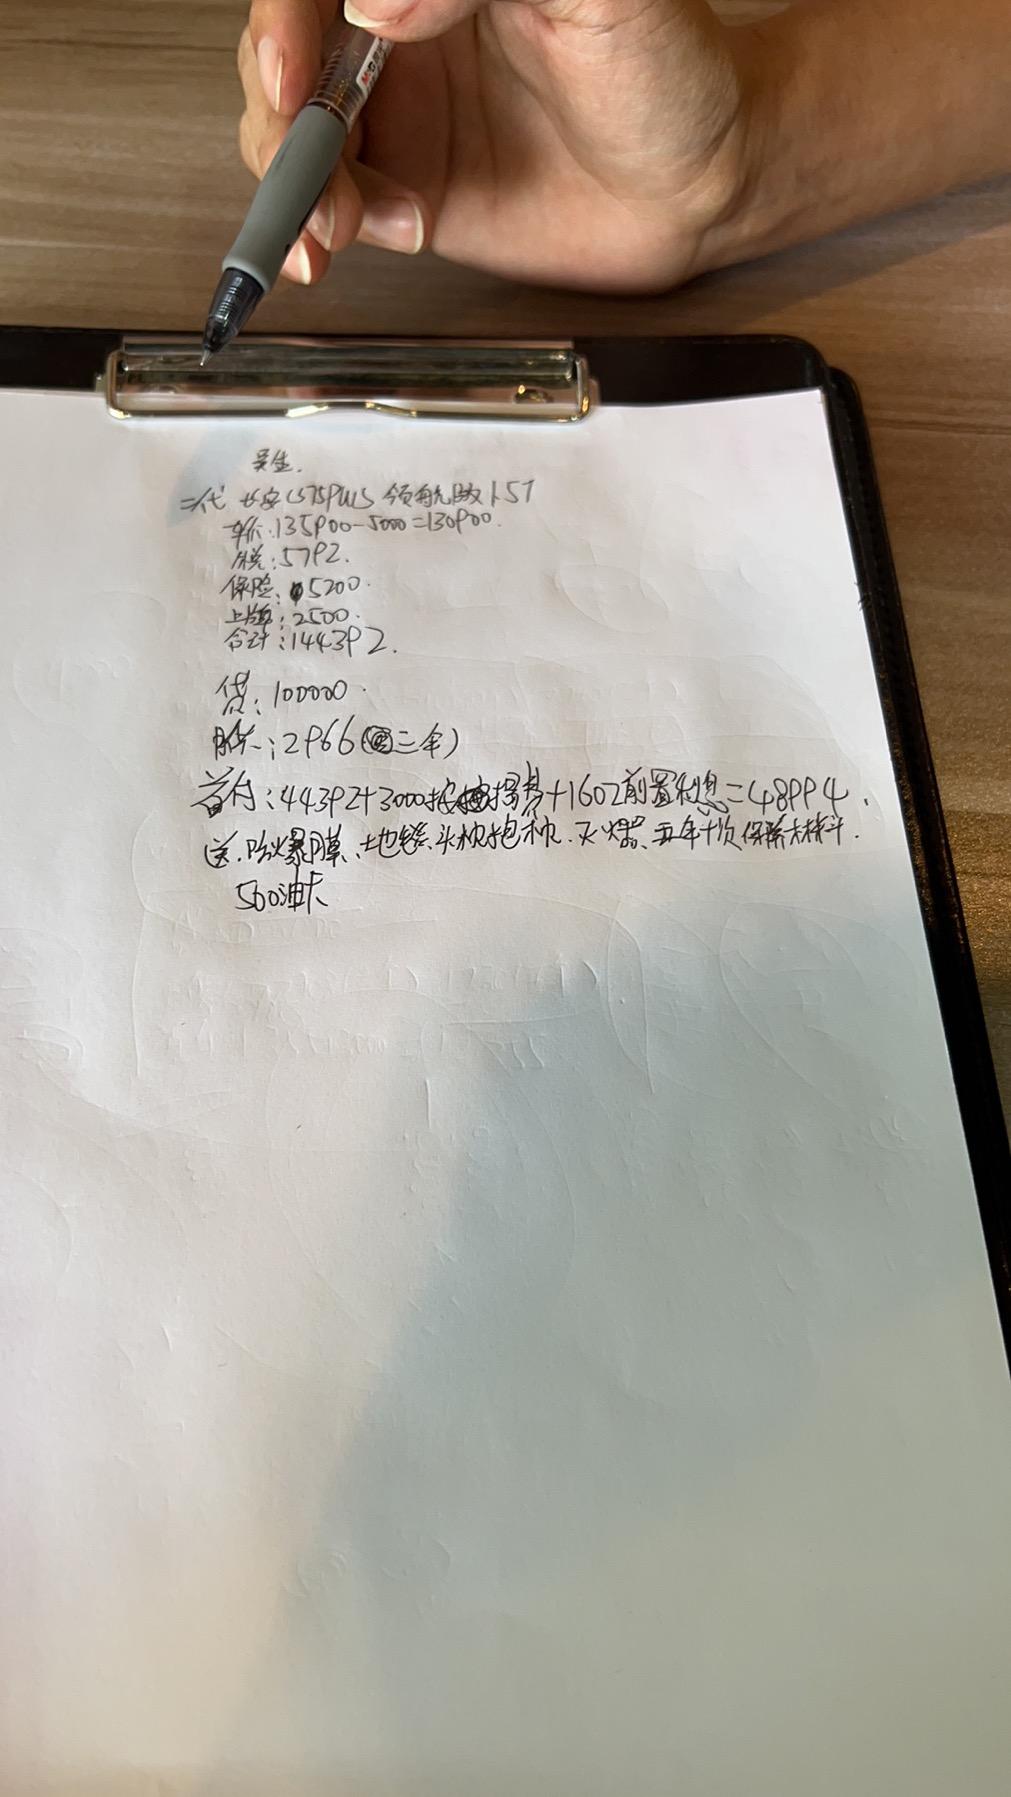 吴生.
二代 长安CS75PLUS 领航版1.5T
车价:135900-5000=130900.
税:5792.
保险:5200.
上牌:2500.
合计:144392.
贷:100000.
月供:2966(三年)
首付:44392+3000按揭费+1602前置利息=48994.
送.防爆膜、地毯、头枕抱枕.灭火器、五年十次保养
500油卡